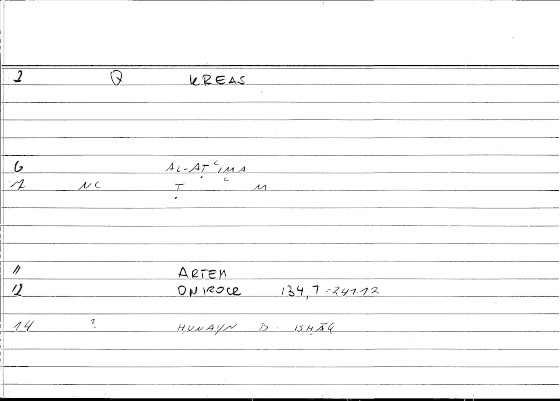 2 Q KREAS
6 AL-AṬʿIMA
7 NC Ṭ ʿ M
11 ARTEM
12 ONIROCR 134,7 = 241.12
14 ? HUNAYN B. ISḤĀQ